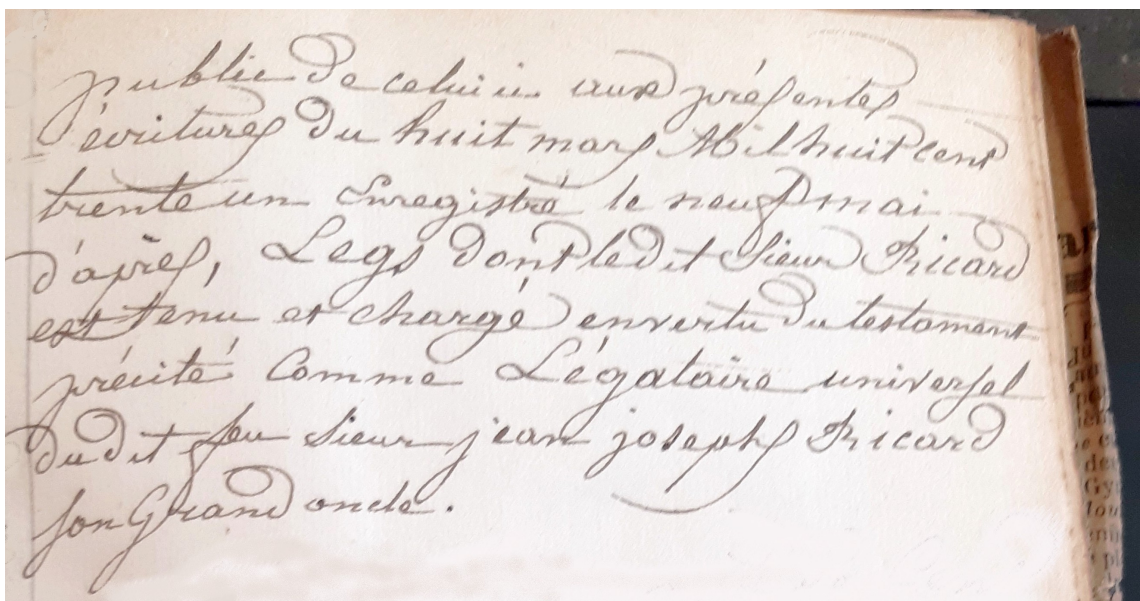 public de celui ci aux présentes
écritures du huit mars Mil huit cent
trente un Enregistré le neuf mai
d'après, Legs dont ledit Sieur Ricard
est tenu et chargé en vertu du testament
précité Comme Légataire universel
dudit feu Sieur jean joseph Ricard
son Grand oncle.